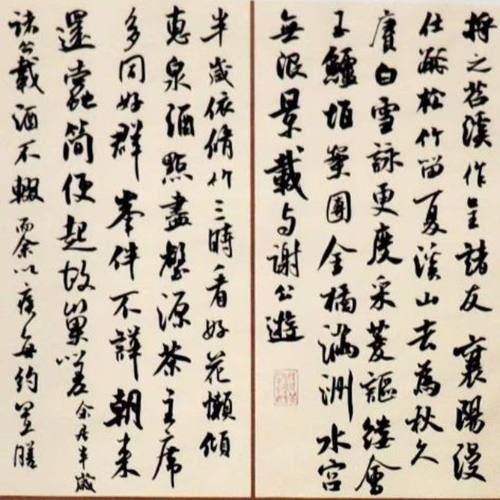 将之苕溪作呈諸友 襄陽漫
仕黻松竹留夏溪山去為秋久
賡白雪詠更度采菱謳縷會
玉鱸堆案團金橘滿洲水宮
無限景載与謝公遊
半歲依脩竹三時看好花懶傾
惠泉酒點盡壑源茶主席
多同好群峯伴不譁朝来
還蠹简便起故巢嗟 余居半歲
諸公載酒不輟 而余以疾每約置膳